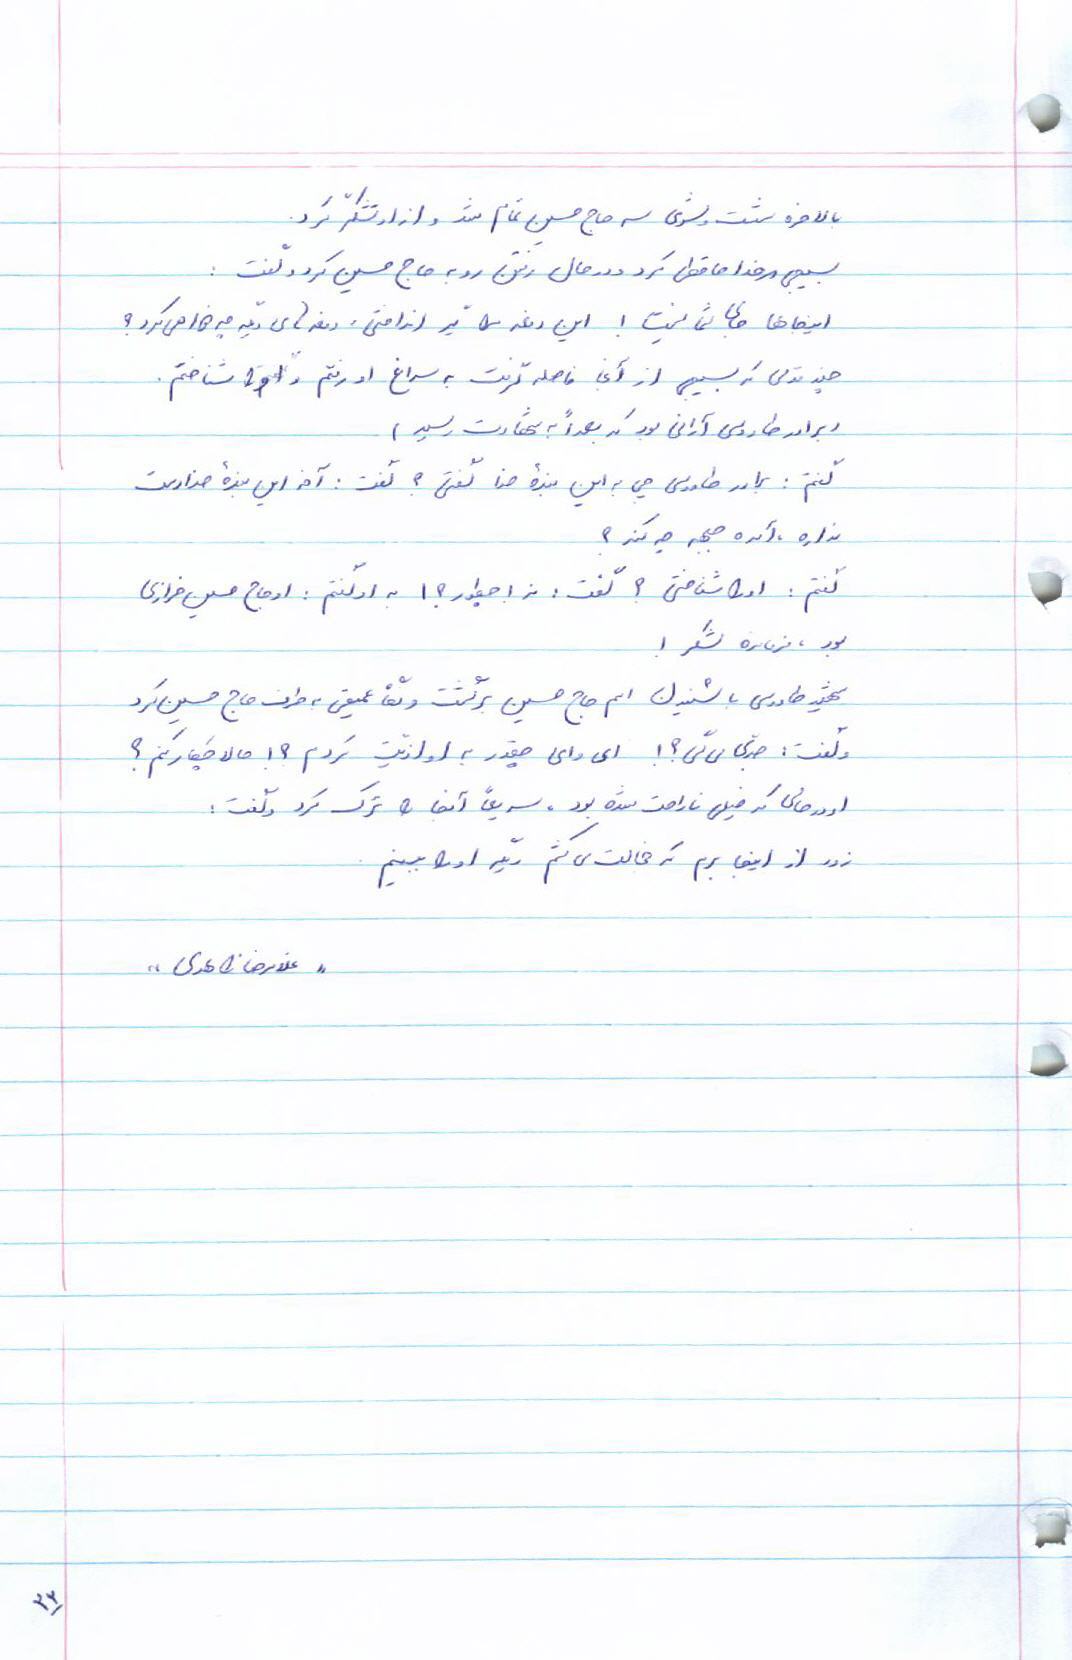 بالاخره شست و شوی سر حاج حسین تمام شد و از او تشکّر کرد.
بسیجی هم خداحافظی کرد و در حال رفتن رو به حاج حسین کرد و گفت :
اینجاها جای شما نیست ! این دفعه را تیر انداختی ، دفعه‌های دیگه چه خواهی کرد ؟
چند قدمی که بسیجی از آنجا فاصله گرفت به سراغ او رفتم و او را شناختم .
( برادر طاووسی آرانی بود که بعداً به شهادت رسید )
گفتم : برادر طاووسی چی به این بندهٔ خدا گفتی ؟ گفت : آخه این بندهٔ خدا دست
نداره ، آمده جبهه چه کنه ؟
گفتم : او را شناختی ؟ گفت : نه ! چطور ؟! به او گفتم : او حاج حسین خرازی
بود ، فرمانده لشکر !
شهید طاووسی با شنیدن اسم حاج حسین برگشت و نگاه عمیقی به طرف حاج حسین کرد
و گفت : جدّی می‌گی ؟! ای وای چقدر به او اذیّت کردم ؟! حالا چکار کنم ؟
او در حالی که خیلی ناراحت شده بود ، سریعاً آنجا را ترک کرد و گفت :
زود از اینجا برم که خجالت می‌کشم دیگه او را ببینم .
« غلامرضا زاهدی »
۲۲